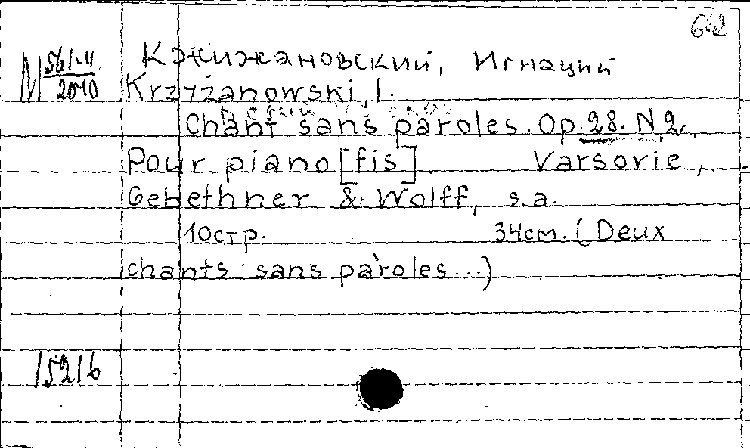 642
М 561-11
2010
Кжижановский, Игнаций
Krzyżanowski, I.
Chant sans paroles. Op. 28. N 2.
Pour piano [fis] Varsovie,
Gebethner & Wolff, s.a.
10стр. 34см. (Deux
chants sans paroles...)
15216